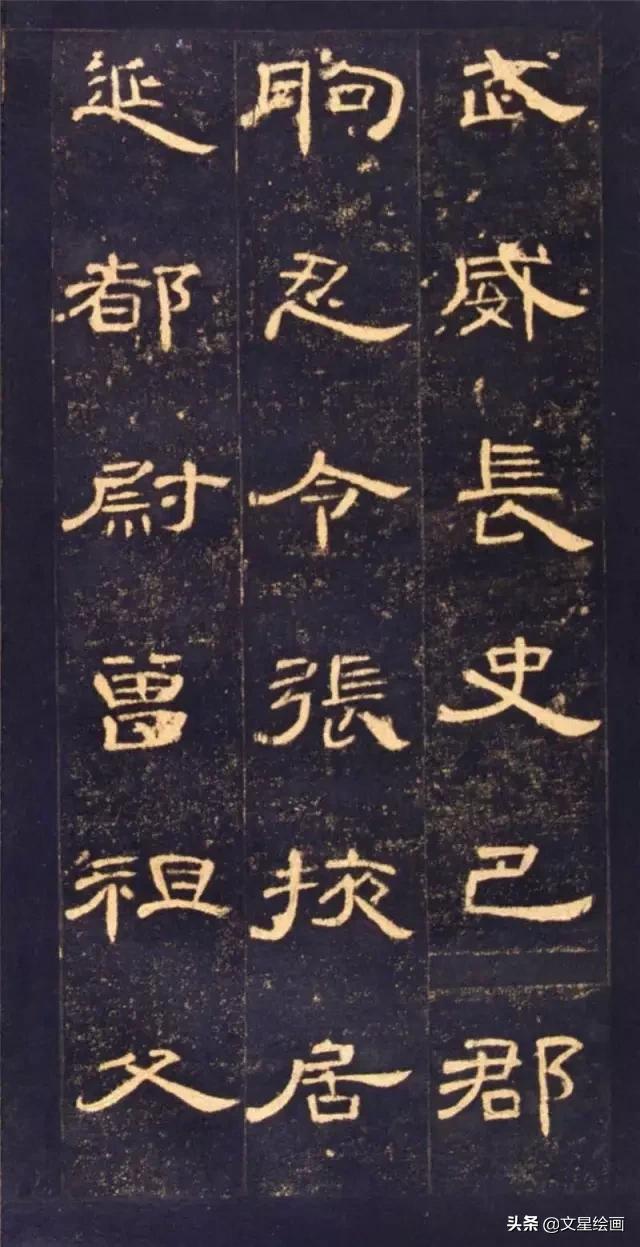 武威長史巴郡
朐忍令張掖居
延都尉曾祖父
头条@文星绘画